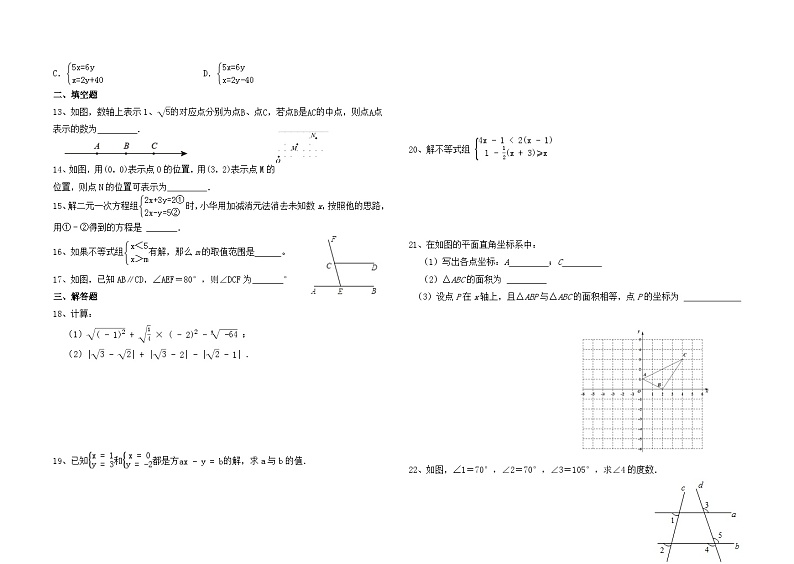 C. {5x=6y
x=2y+40
D. {5x=6y
x=2y-40
二、填空题
13、如图,数轴上表示1、√5的对应点分别为点B、点C,若点B是AC的中点,则点A点
表示的数为________.
A B C
N
M
O
14、如图,用(0,0)表示点O的位置,用(3,2)表示点M的
位置,则点N的位置可表示为________.
15、解二元一次方程组{2x+3y=2①
2x-y=5②
时,小华用加减消元法消去未知数x,按照他的思路,
用①﹣②得到的方程是 ______.
16、如果不等式组{x<5
x>m
有解,那么m的取值范围是______。
17、如图,已知AB∥CD,∠AEF=80°,则∠DCF为_______°
F
C D
A E B
三、解答题
18、计算:
(2)|√3 - √2| + |√3 - 2| - |√2 - 1| .
19、已知{x = 1
y = 3
和{x = 0
y = -2
都是方ax - y = b的解,求a与b的值.
20、解不等式组 {4x - 1 < 2(x - 1)
1 - ½(x + 3)⩾x
21、在如图的平面直角坐标系中:
(1)写出各点坐标:A________;C________
(2)△ABC的面积为 ________
(3)设点P在x轴上,且△ABP与△ABC的面积相等,点P的坐标为 ____________
22、如图,∠1=70°,∠2=70°,∠3=105°,求∠4的度数.
c d
3
a
1
5
2 4 b